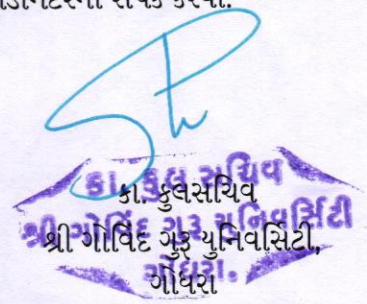 સંપર્ક કરવો.
કા. કુલ સચિવ
શ્રી ગોવિંદ ગુરુ યુનિવર્સિટી
ગોધરા.
કા. કુલસચિવ
શ્રી ગોવિંદ ગુરૂ યુનિવર્સિટી,
ગોધરા